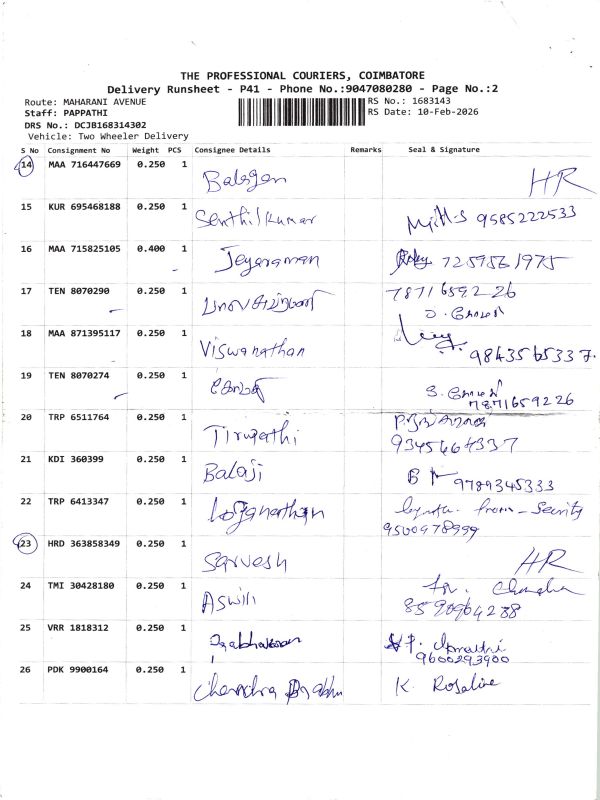 THE PROFESSIONAL COURIERS, COIMBATORE
Delivery Runsheet - P41 - Phone No.:9047080280 - Page No.:2
Route: MAHARANI AVENUE
RS No.: 1683143
Staff: PAPPATHI
RS Date: 10-Feb-2026
DRS No.: DCJB168314302
Vehicle: Two Wheeler Delivery
S No Consignment No Weight PCS Consignee Details Remarks Seal & Signature
14 MAA 716447669 0.250 1 HR
15 KUR 695468188 0.250 1 Senthil Kumar 9585222533
16 MAA 715825105 0.400 1 Jeyaraman 7259561975
17 TEN 8070290 0.250 1 7871659226
18 MAA 871395117 0.250 1 Viswanathan 9843565337.
19 TEN 8070274 0.250 1 கோமதி 7871659226
20 TRP 6511764 0.250 1 Tirupathi
9345664337
21 KDI 360399 0.250 1 Balaji 9789345333
22 TRP 6413347 0.250 1 Security
9500978999
23 HRD 363858349 0.250 1 Sarvesh HR
24 TMI 30428180 0.250 1 Aswin
25 VRR 1818312 0.250 1
9600293900
26 PDK 9900164 0.250 1 Chandra Prabhu K. Rosaline